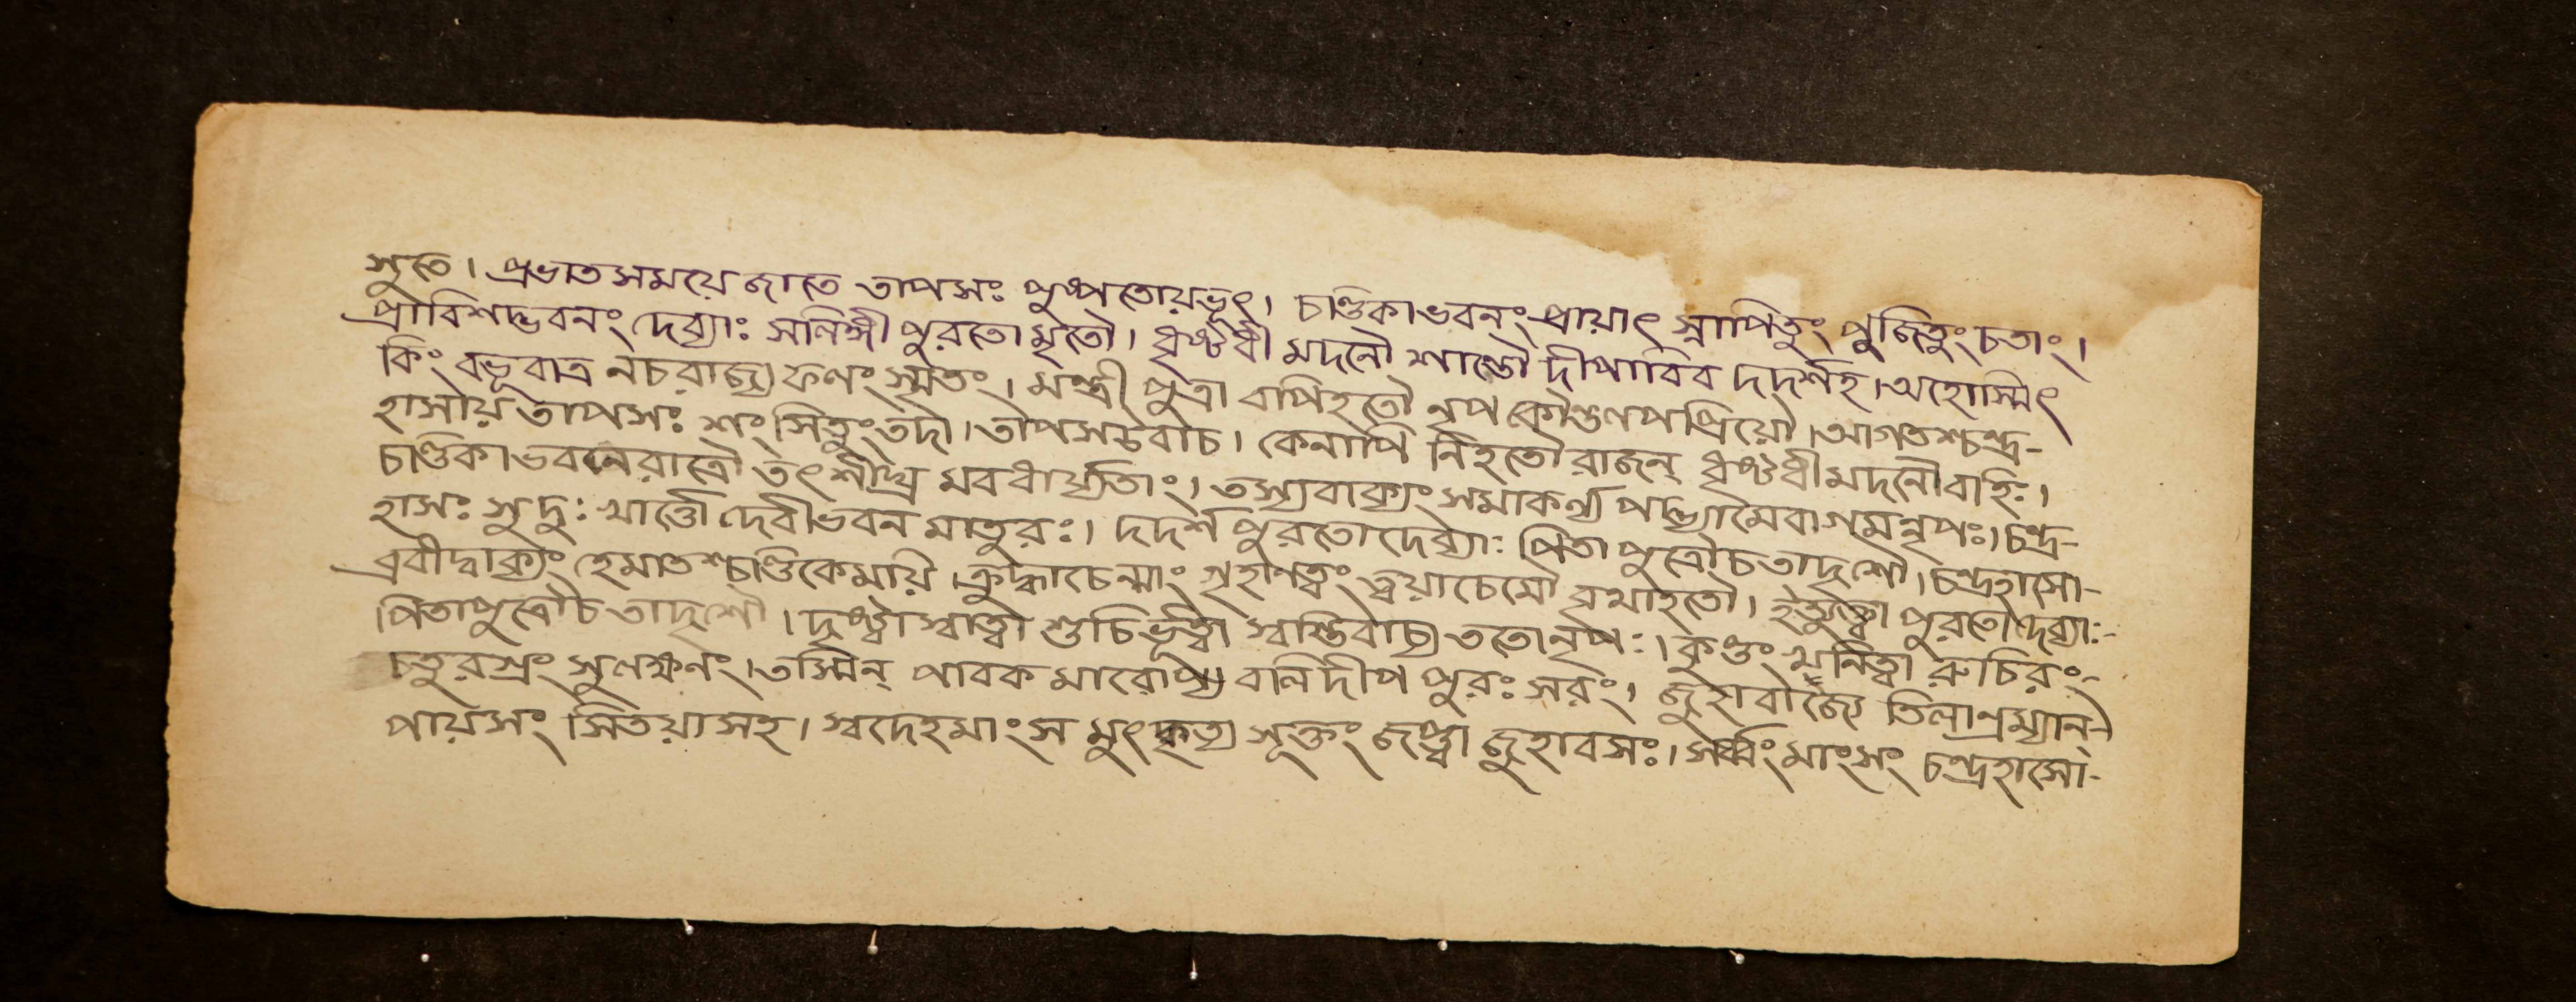 সুতে। প্রভাতসময়েজাতে তাপসঃ পুষ্পতোয়ভৃৎ। চণ্ডিকাভবনং প্রায়াৎ স্নাপিতুং পুজিতুংচতাং।
প্রাবিশদ্ভবনং দেব্যাঃ সলিঙ্গী পুরতোমৃতৌ। ধৃষ্টধী মদনৌ শান্তৌ দীপাবিব দদর্শহ। অহোস্মিৎ
কিং বভূবাত্র নচরাজ্য ফলং স্মৃতং। মন্ত্রী পুত্রা বপিহতৌ নৃপ কৌন্তলপপ্রিয়ৌ। আগতশ্চন্দ্র-
হাসায় তাপসঃ শংসিতুংতদা। তাপসউবাচ। কেনাপি নিহতৌরাজন্ ধৃষ্টধীমদনৌবহিঃ।
চণ্ডিকাভবনেরাত্রৌ তৎ শীঘ্র মবধার্য্যতাং। তস্যবাক্যং সমাকর্ণ্য পদ্ভ্যামেবাগমন্নৃপঃ। চন্দ্র-
হাসঃ সুদুঃখার্ত্তো দেবীভবন মাতুরঃ। দদর্শ পুরতোদেব্যাঃ পিতাপুত্রৌচতাদৃশৌ। চন্দ্রহাসো-
ব্রবীদ্বাক্যং হেমাতশ্চণ্ডিকেময়ি। ক্রুদ্ধাচেন্মাং গৃহাণত্বং ত্বয়াচেমৌ বৃথাহতৌ। ইত্যুক্ত্বা পুরতোদেব্যাঃ-
পিতাপুত্রৌচ তাদৃশৌ। দৃষ্ট্বা স্নাত্বা শুচিভূত্বা স্বস্তিবাচ্য ততোনৃপঃ। কুণ্ডং খনিত্বা রুচিরং-
চতুরস্রং সুলক্ষণং। তস্মিন্ পাবক মারোপ্য বলিদীপ পুরঃ সরং। জুহাবাজ্যৈ তিলান্রম্যান্-
পায়সং সিতয়াসহ। স্বদেহমাংস মুৎকৃত্য সূক্তং জপ্ত্বা জুহাবসঃ। সর্ব্বংমাংসং চন্দ্রহাসো-